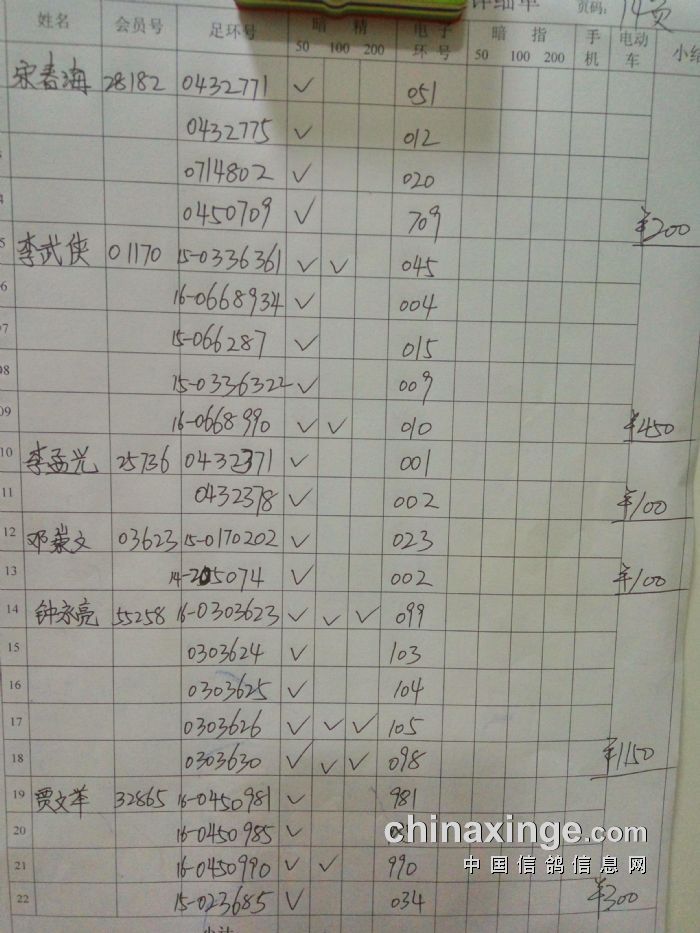 详细单 页码: 14页
姓名 会员号 足环号 暗 精 电子环号 暗 指 手机 电动车 小结
50 100 200 50 100 200
宋春海 28182 0432771 ✓ 051
0432775 ✓ 012
0714802 ✓ 020
0450709 ✓ 709 ¥200
李武侠 01170 15-0336361 ✓ ✓ 045
06 16-0668934 ✓ 004
07 15-066287 ✓ 015
08 15-0336322 ✓ 009
09 16-0668990 ✓ ✓ 010 ¥450
10 李孟光 25736 0432371 ✓ 001
11 0432378 ✓ 002 ¥100
12 邓崇文 03623 15-0170202 ✓ 023
13 14-205074 ✓ 002 ¥100
14 钟永亮 55258 16-0303623 ✓ ✓ ✓ 099
15 0303624 ✓ 103
16 0303625 ✓ 104
17 0303626 ✓ ✓ ✓ 105
18 0303630 ✓ ✓ ✓ 098 ¥1150
19 贾文革 32865 16-0450981 ✓ 981
20 16-0450985 ✓
chinaxinge.com
21 16-0450990 ✓ ✓ 990
中国信鸽信息网
22 15-023685 ✓ 034 ¥300